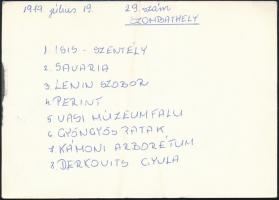 1979 július 19. 29. szám
SZOMBATHELY
1. ISIS - SZENTÉLY
2. SAVARIA
3. LENIN SZOBOR
4. PERINT
5. VASI MÚZEUMFALU
6. GYÖNGYÖS PATAK
7. KÁMONI ARBORÉTUM
8. DERKOVITS GYULA